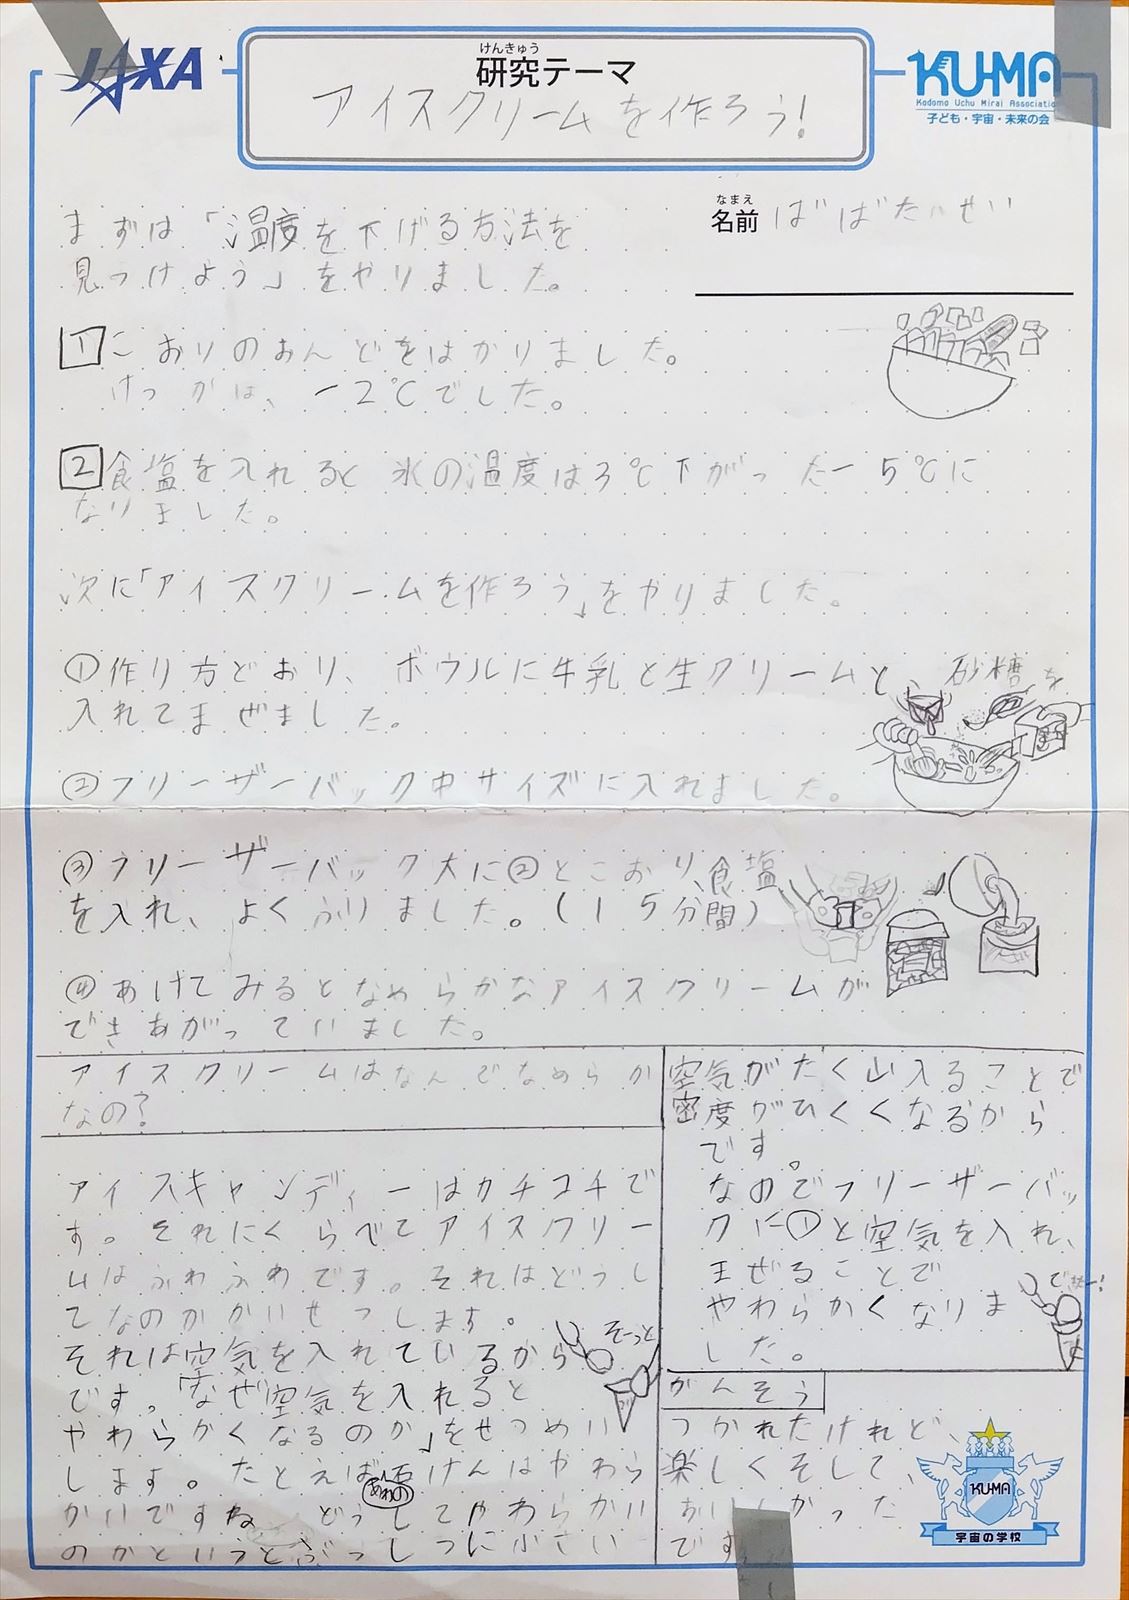 JAXA
けんきゅう
研究テーマ
アイスクリームを作ろう!
KU-MA
Kodomo Uchu Mirai Associatio
子ども・宇宙・未来の会
なまえ
名前 ばばた せい
まずは「温度を下げる方法を
見つけよう」をやりました。
1 こおりのおんどをはかりました。
けっかは、-2℃でした。
2 食塩を入れると氷の温度は3℃下がった-5℃に
なりました。
次に「アイスクリームを作ろう」をやりました。
①作り方どおり、ボウルに牛乳と生クリームと、砂糖を
入れてまぜました。
②フリーザーバック中サイズに入れました。
③フリーザーバック大に②とこおり、食塩
を入れ、よくふりました。(15分間)
④あけてみるとなめらかなアイスクリームが
できあがっていました。
アイスクリームはなんでなめらか
なの?
アイスキャンディーはカチコチで
す。それにくらべてアイスクリー
ムはふわふわです。それはどうし
てなのかかいせつします。
それは空気を入れているから
です。「なぜ空気を入れると
やわらかくなるのか」をせつめい
します。たとえば石けんはやわら
あわの
かいですね どうしてやわらかい
のかというとぶっしつに小さい
そーっと
空気がたく山入ることで
密度がひくくなるから
です。
なのでフリーザーバッ
クに①と空気を入れ、
まぜることで
やわらかくなりま
した。
がんそう
つかれたけれど、
楽しくそして、
おいしかった
です
KU-MA
宇宙の学校